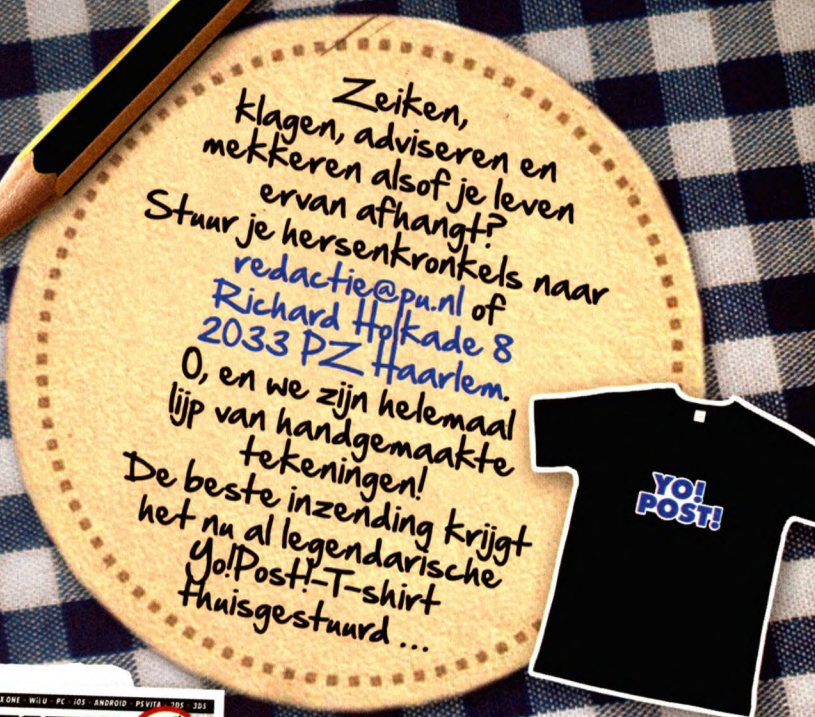 Zeiken,
klagen, adviseren en
mekkeren alsof je leven
ervan afhangt?
Stuur je hersenkronkels naar
redactie@pu.nl of
Richard Holkade 8
2033 PZ Haarlem.
O, en we zijn helemaal
lijp van handgemaakte
tekeningen!
De beste inzending krijgt
het nu al legendarische
Yo!Post!-T-shirt
thuisgestuurd ...
YO!
POST!
X ONE · Wii U · PC · iOS · ANDROID · PS VITA · 2DS · 3DS